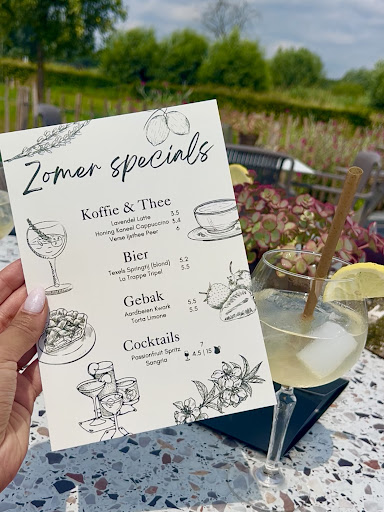 Zomer specials
Koffie & Thee
Lavendel Latte 3.5
Honing Kaneel Cappuccino 3.4
Verse Ijsthee Peer 6
Bier
Texels Springtij (blond) 5.2
La Trappe Tripel 5.5
Gebak
Aardbeien Kwark 5.5
Torta Limone 5.5
Cocktails
Passionfruit Spritz 7
Sangria 4,5 | 15